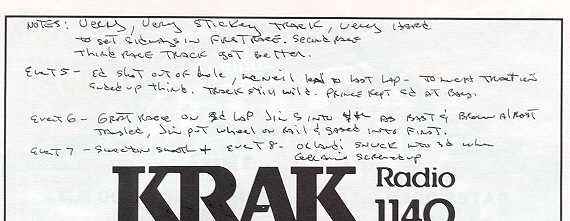 NOTES: Very, Very Sticky Track, Very Hard
to get sideways in First Race. Second Race
Third Race Track got better.
Event 5 - Ed shot out of hole, led to last lap - To much Traction
ended up Third. Track still wild. Prince kept Ed at Bay.
Event 6 - Great Race on 3d Lap Jim S into as Bast & Brown Almost
Tangled, Jim put wheel on Rail & gased into First.
Event 7 - smooth + Event 8 - Orlandi snuck into 3d when
screwed up
KRAK Radio
1140